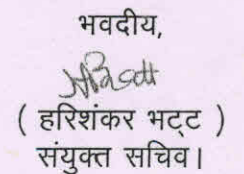 भवदीय,
( हरिशंकर भट्ट )
संयुक्त सचिव।